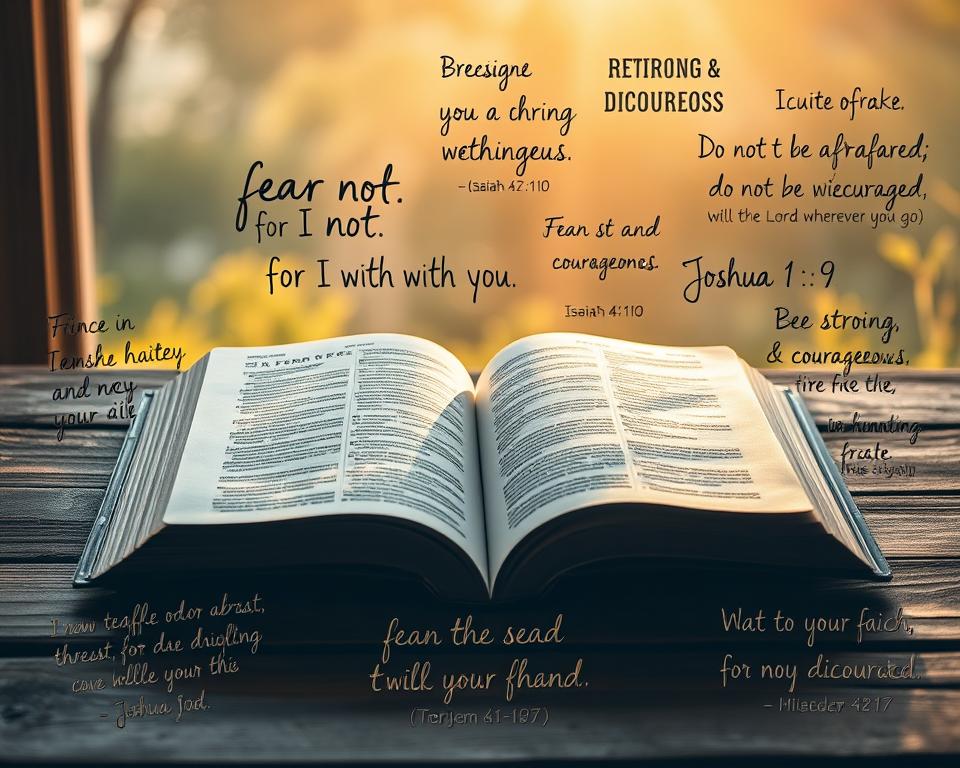 Breesigne
you a chring
wethingeus.
– (saiah 42:110
RETIRONG &
DICOUREOSS
Icuite ofrake.
Do not t be afrafared;
do not be wiecuraged,
will the Lord wherever you go)
fear not.
for I not.
for I with with you.
Fean st and
courageones.
Isaiah 4:110
Joshua 1::9
Bee stroing,
& courageous,
fire fie the,
frcate
Fince in
Temshe haitey
and ney
your aile
I now teaffle odor abrast,
threast, for dae drioling
cove wellle your this
– Joshua Jod.
fean the sead
twill your fhand.
(Tenjem 61-197)
Wat to your faich,
for noy dicourated.
– Hiseder 4217